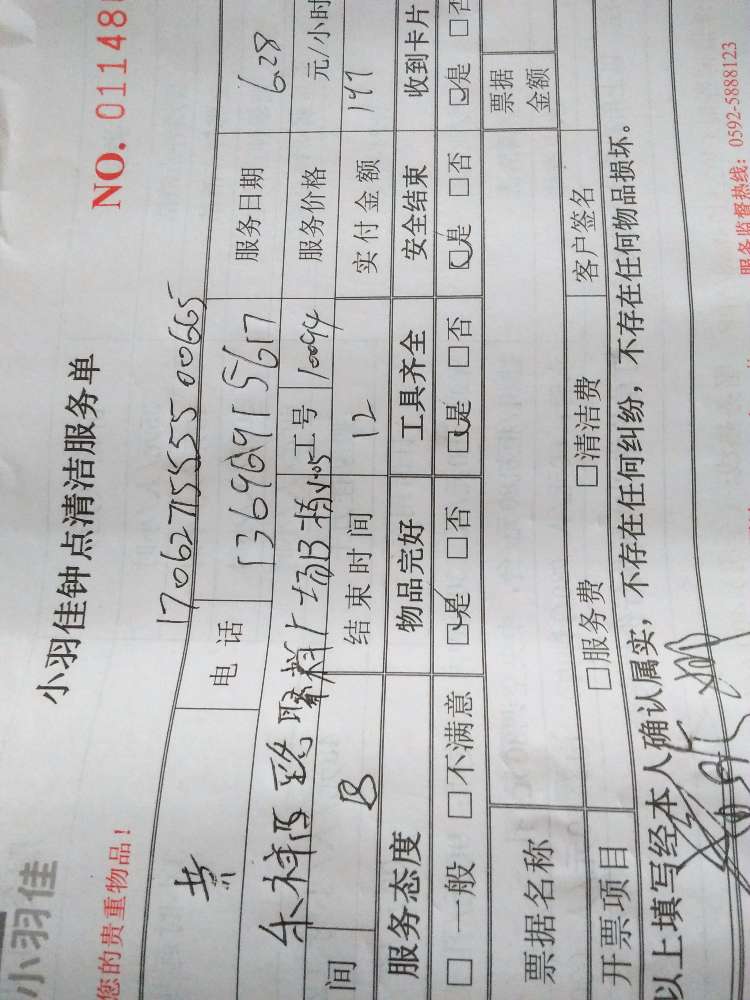 小羽佳
您的贵重物品!
小羽佳钟点清洁服务单
NO. 01148
1706271555500665
电话 13696915617 服务日期 6.28
工号 10094 服务价格 元/小时
间 结束时间 12 实付金额 197
服务态度 物品完好 工具齐全 安全结束 收到卡片
□ 一般 □不满意 □是 □否 □是 □否 □是 □否 □是 □否
票据名称 票据金额
开票项目 □服务费 □清洁费 客户签名
以上填写经本人确认属实,不存在任何纠纷,不存在任何物品损坏。
服务监督热线: 0592-5888123